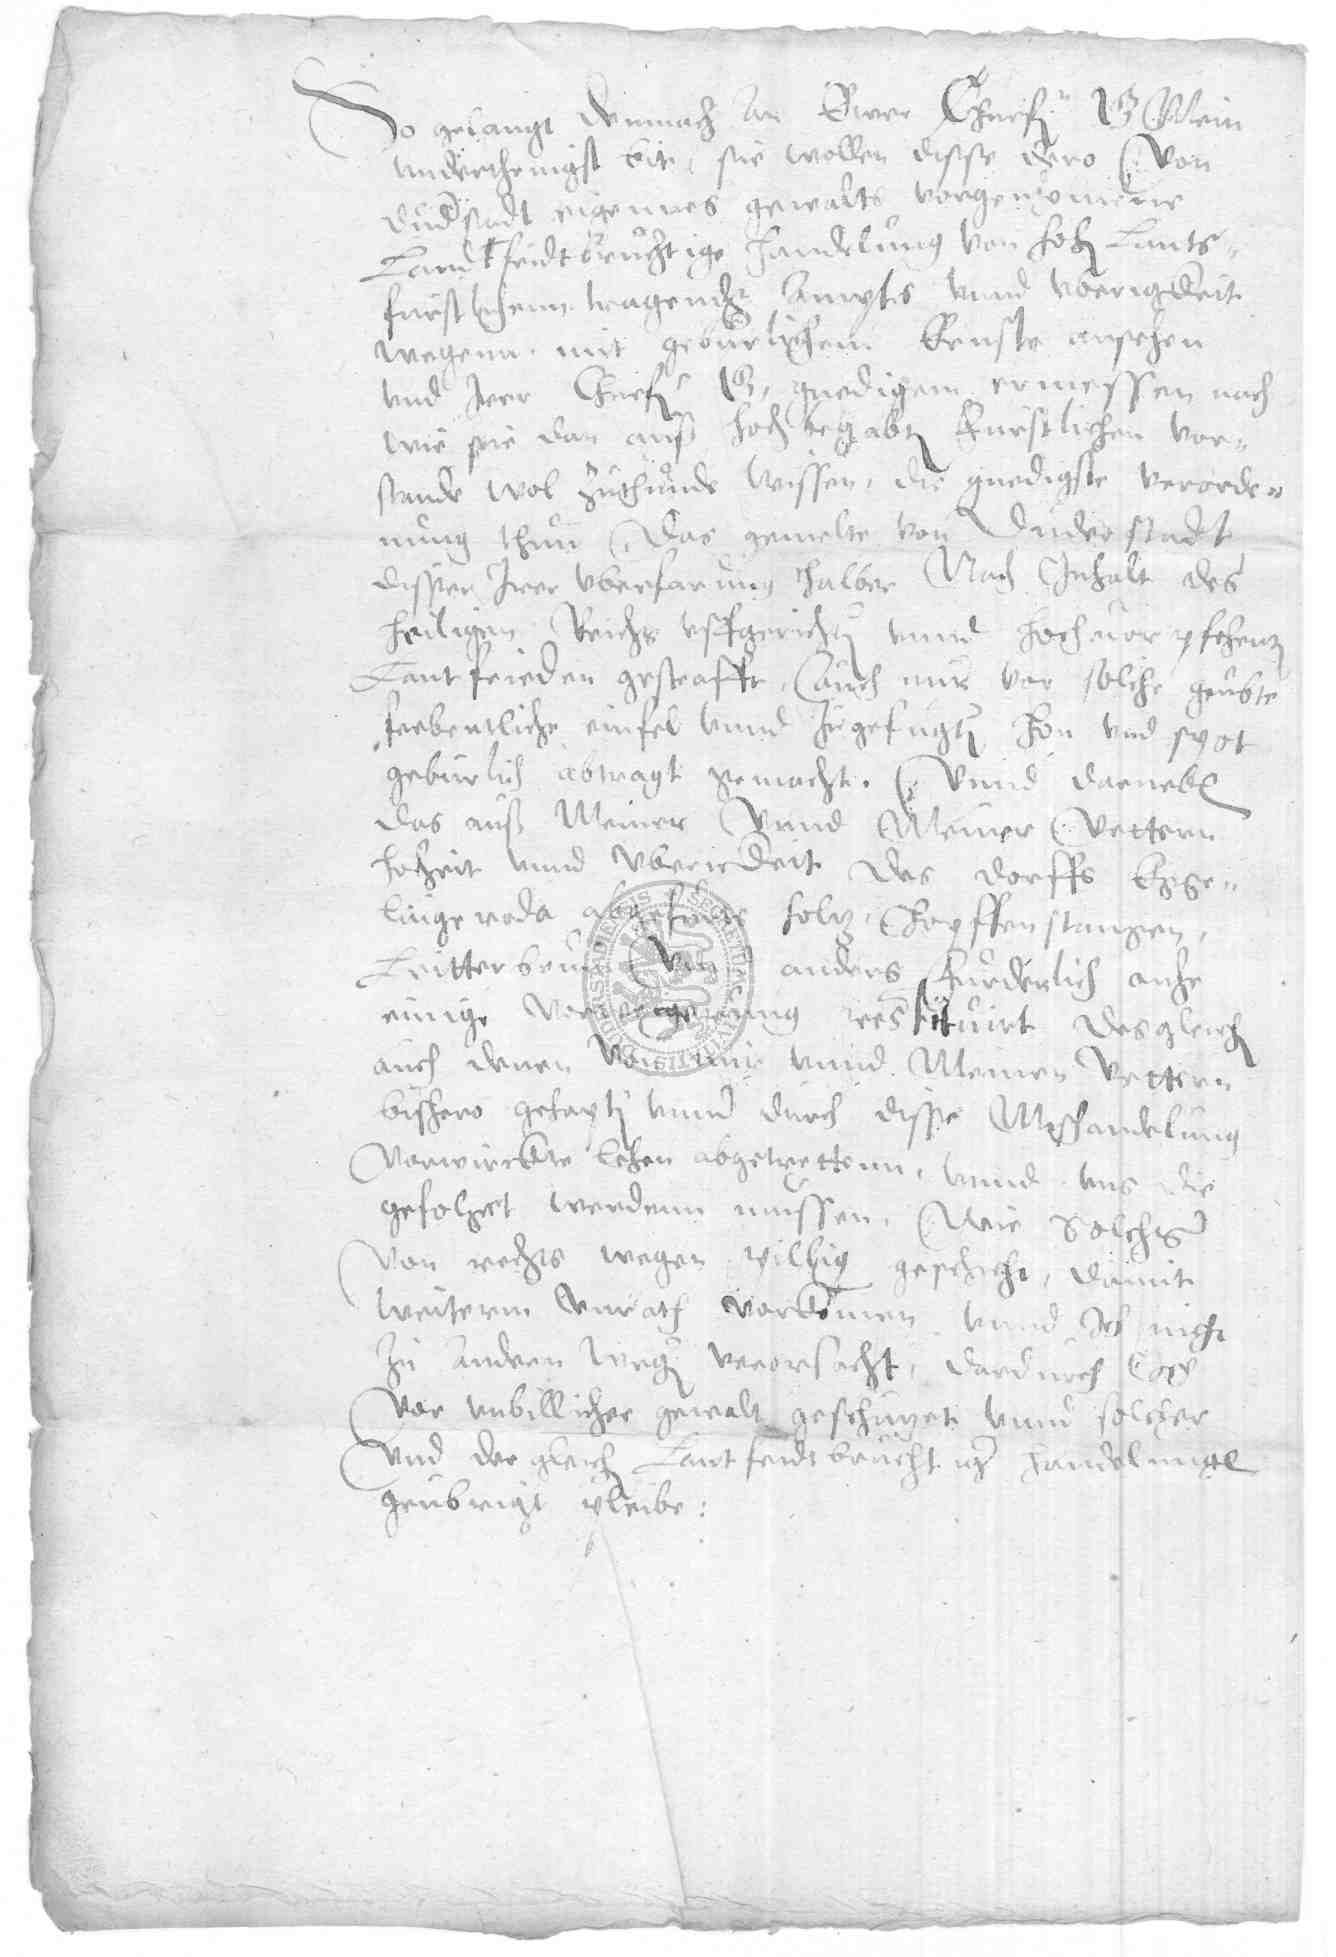 So gelangt demnach an Ewer Churf. G. Mein
underthenigst bit, sie wollen disse dero von
Duderstadt eigennes gewalts vorgenomene
Landtfridtbruchtige handelung von hoh Lants-
furstlichenn tragenden Ampts unnd oberigkeit
wegenn mit geburlichem Ernste ansehen
und Irer Churf. G. gnedigem ermessen nach
wie sie dan auß hoch begabt Furstlichen vor-
stande wol zuthunde wissen, die gnedigste verorde-
nung thun, Das gemelte von Duderstadt
disser Irer uberfarung halber Nach Inhalt des
heiligen Reichs uffgericht unnd hoch vor
Lantfrieden gestrafft, auch mir vor solche geubte
frebentliche einfel unnd zugefugt hon und spot
geburlich abtragt gemacht. Unnd darneben
das auß Meiner Unnd Meiner Vettern
hoheit unnd Oberickeit des dorffs
lingeroda abgefurte holtz, Hopffenstangen,
Unnd anders Furderlich ane
einige vorwegerung restituirt desgleich
auch denen von mir unnd Meinen Vettern
bißhero gehapt unnd durch disse Mishandelung
vorwirckte lehen abgetrettenn, unnd uns die
gefolget werdenn mussen, Wie Solchs
von rechts wegen pillig geschicht, damit
weiterm Unrath vorkomen unnd Ich nicht
zu andern weg verorsacht, dardurch Ich
vor unbillicher gewalt geschutzet unnd solcher
und der gleich Lantfridtbruchtig handelunge
geubrigt pleibe: